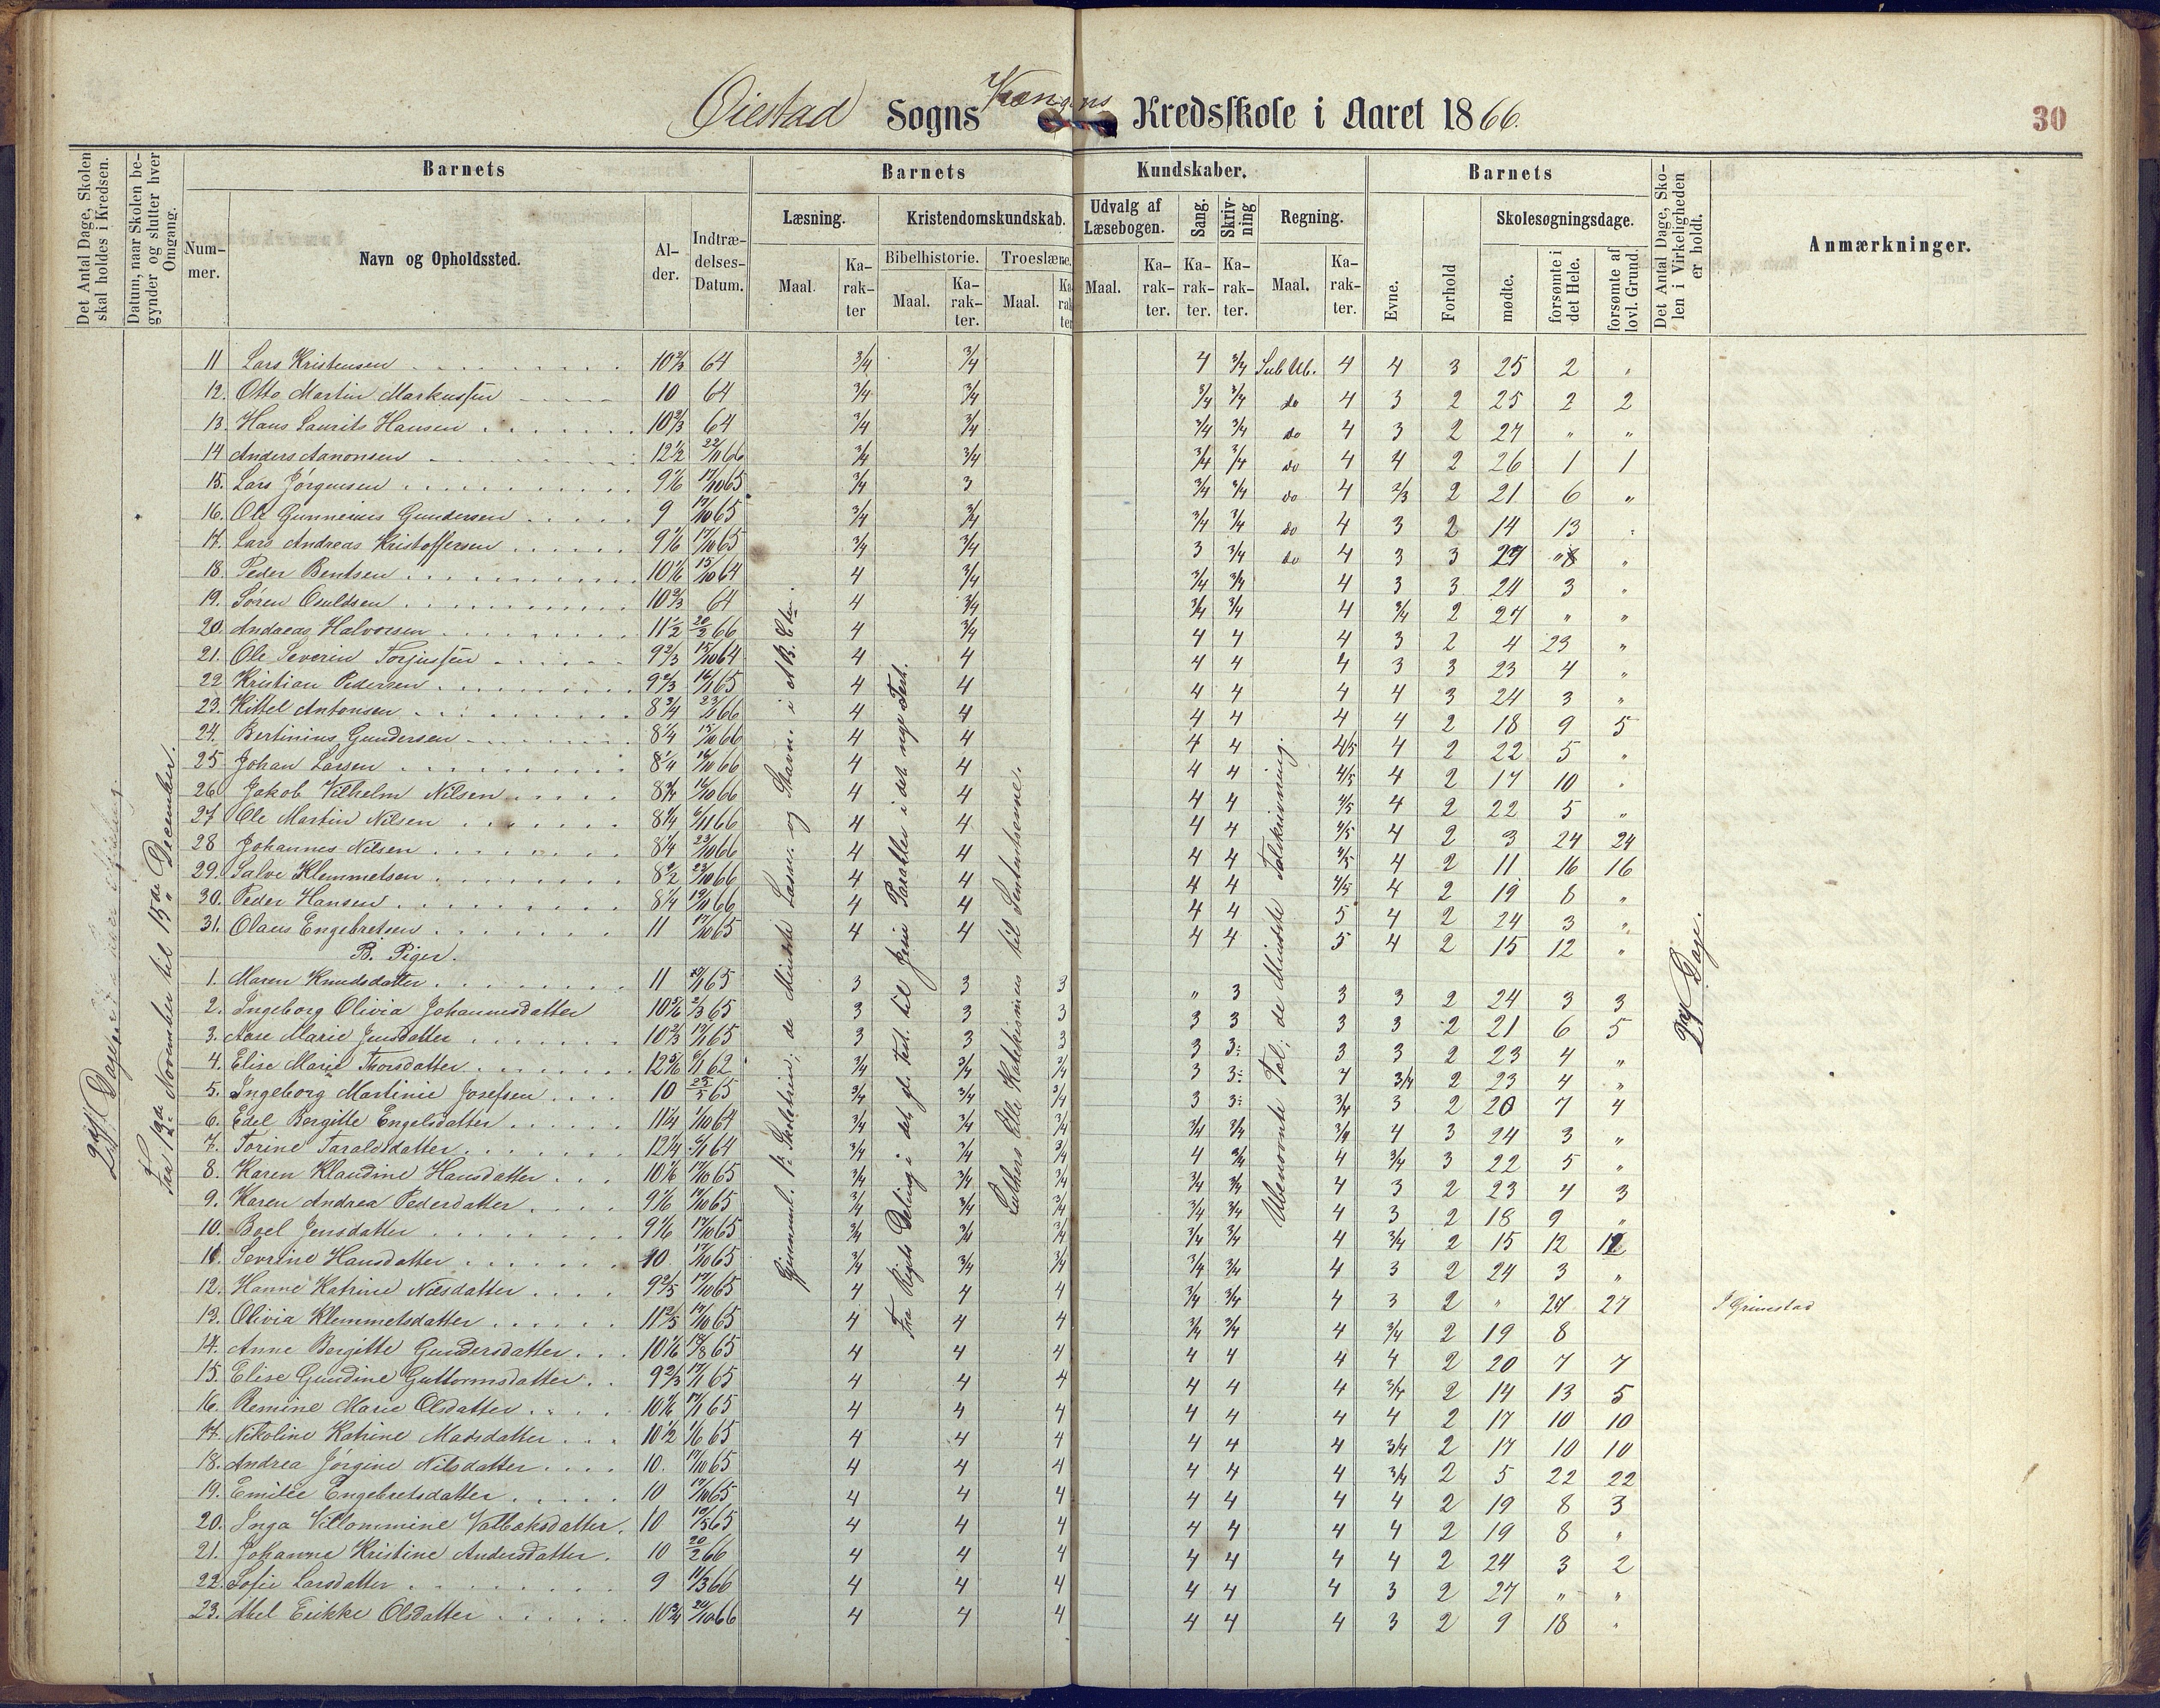 Øiestad Sogns Krængens Kredsskole i Aaret 1866.
30
Det Antal Dage, Skolen skal holdes i Kredsen.
Datum, naar Skolen begynder og slutter hver Omgang.
Barnets
Nummer.
Navn og Opholdssted.
Alder.
Indtrædelses-Datum.
Barnets Kundskaber.
Læsning.
Maal.
Karakter
Kristendomskundskab.
Bibelhistorie.
Maal.
Karakter.
Troeslære.
Maal.
Karakter
Udvalg af Læsebogen.
Maal.
Karakter.
Sang.
Karakter.
Skrivning
Karakter.
Regning.
Maal.
Karakter.
Barnets
Evne.
Forhold
Skolesøgningsdage.
mødte.
forsømte i det Hele.
forsømte af lovl. Grund.
Det Antal Dage, Skolen i Virkeligheden er holdt.
Anmærkninger.
Fra 12te November til 15de December.
27 Dage.
11 Lars Kristensen 10 2/3 64 3/4 3/4 4 3/4 4 4 3 25 2 "
12. Otto Martin Markussen 10 64 3/4 3/4 3/4 3/4 do 4 3 2 25 2 2
13. Hans Laurits Hansen 10 2/3 64 3/4 3/4 3/4 3/4 do 4 3 2 27 " "
14 Anders Aanonsen 12 1/2 22/11 66 3/4 3/4 3/4 3/4 do 4 4 2 26 1 1
15. Lars Jørgensen 9 1/6 17/10 65 3/4 3 3/4 3/4 do 4 2/3 2 21 6 "
16. Ole Gunnerius Gundersen 9 17/10 65 3/4 3/4 3/4 3/4 do 4 3 2 14 13 "
17. Lars Andreas Kristoffersen 9 1/6 17/10 65 3/4 3/4 3 3/4 do 4 3 3 27 "
18. Peder Bentsen 10 1/6 15/10 64 4 3/4 3/4 3/4 4 3 3 24 3 "
19. Søren Osuldsen 10 2/3 64 4 3/4 3/4 3/4 4 3/4 2 27 " "
20. Andreas Halvorsen 11 1/2 20/2 66 4 3/4 4 4 4 3 2 4 23 "
21. Ole Severin Torjussen 9 2/3 15/10 64 4 4 4 4 4 3 3 23 4 "
22 Kristian Pedersen 9 2/3 16/1 65 4 4 4 4 4 4 3 24 3 "
23. Kittel Antonsen 8 3/4 4 4 4 4 4 4 2 18 9 5
24. Bertinius Gundersen 8 1/4 15/10 66 4 4 4 4 4/5 4 2 22 5 "
25 Johan Larsen 8 1/4 16/10 66 4 4 4 4 4/5 4 2 17 10 "
26 Jakob Vilhelm Nilsen 8 3/4 16/10 66 4 4 4 4 4/5 4 2 22 5 "
27 Ole Martin Nilsen 8 1/4 6/11 66 4 4 4 4 4/5 4 2 3 24 24
28 Johannes Nilsen 8 1/4 23/10 66 4 4 4 4 4/5 4 2 11 16 16
29. Salve Klemmetsen 23/10 66 4 4 4 4 4/5 4 2 19 8 "
30. Peder Hansen 8 1/4 66 4 4 4 4 5 4 2 24 3 "
31. Olaus Engebretsen 11 17/10 65 4 4 4 4 5 4 2 15 12 "
B. Piger.
1. Maren Knudsdatter 11 65 3 3 3 " 3 3 3 2 24 3 3
2. Ingeborg Olivia Johannesdatter 10 5/6 2/3 65 3 3 3 3 3 3 3 2 21 6 5
3. Aase Marie Jensdatter 10 2/3 65 3 3 3 3 3: 3 3 2 23 4 "
4. Elise Marie Thorsdatter 12 5/6 62 3/4 3/4 3/4 3 3: 4 3/4 2 23 4 "
5. Ingeborg Martinie Josefsen 10 65 3/4 3/4 3/4 3 3: 3/4 3 2 20 7 4
6. Edel Bergitte Engelsdatter 11 1/4 1/10 64 3/4 3/4 3/4 3/4 3/4 3/4 4 3 24 3 "
7. Torine Taraldsdatter 12 1/4 64 3/4 3/4 3/4 4 3/4 4 3/4 3 22 5 "
8. Karen Klaudine Hansdatter 10 1/6 17/10 65 3/4 3/4 3/4 3/4 3/4 4 3 2 23 4 3
9. Karen Andrea Pedersdatter 9 1/6 17/10 65 3/4 3/4 3/4 3/4 3/4 4 3 2 18 9 "
10. Boel Jensdatter 9 1/6 17/10 65 3/4 3/4 3/4 3/4 3/4 4 3/4 2 15 12 12
11. Severine Hansdatter 10 17/10 65 3/4 3/4 3/4 3/4 3/4 4 3 2 24 3 "
12. Hanne Katrine Nilsdatter 9 2/5 17/10 65 4 4 4 3/4 3/4 4 3 2 " 27 27 I Grimstad
13. Olivia Klemmetsdatter 11 2/5 17/10 65 4 4 4 3/4 3/4 4 3/4 2 19 8
14. Anne Bergitte Gundersdatter 10 1/6 18/8 65 4 4 4 4 4 4 4 2 20 7 7
15. Elise Gundine Guttormsdatter 9 2/3 17/1 65 4 4 4 4 4 4 3/4 2 14 13 5
16. Remine Marie Olsdatter 10 1/6 17/1 65 4 4 4 4 4 4 4 2 17 10 10
17. Nikoline Katrine Madsdatter 10 1/2 1/6 65 4 4 4 4 4 4 3/4 2 17 10 10
18. Andrea Jørgine Nilsdatter 10. 17/10 65 4 4 4 4 4 4 3/4 2 5 22 22
19. Emilie Engebretsdatter 10 17/10 65 4 4 4 4 4 4 4 2 19 8 3
20. Inga Villommine Valbaksdatter 10 65 4 4 4 4 4 4 4 2 19 8 "
21. Johanne Kristine Andersdatter. 10 20/2 66 4 4 4 4 4 4 4 2 24 3 2
22. Sofie Larsdatter 9 11/3 66 4 4 4 4 4 4 3 2 27 " "
23. Abel Erikke Olsdatter 10 3/4 66 4 4 4 4 4 4 3 2 9 18 "
Luthers lille Katekismes til Sententserne.
Ubenævnte Tal; de Mindste Talskrivning.
27 Dage.